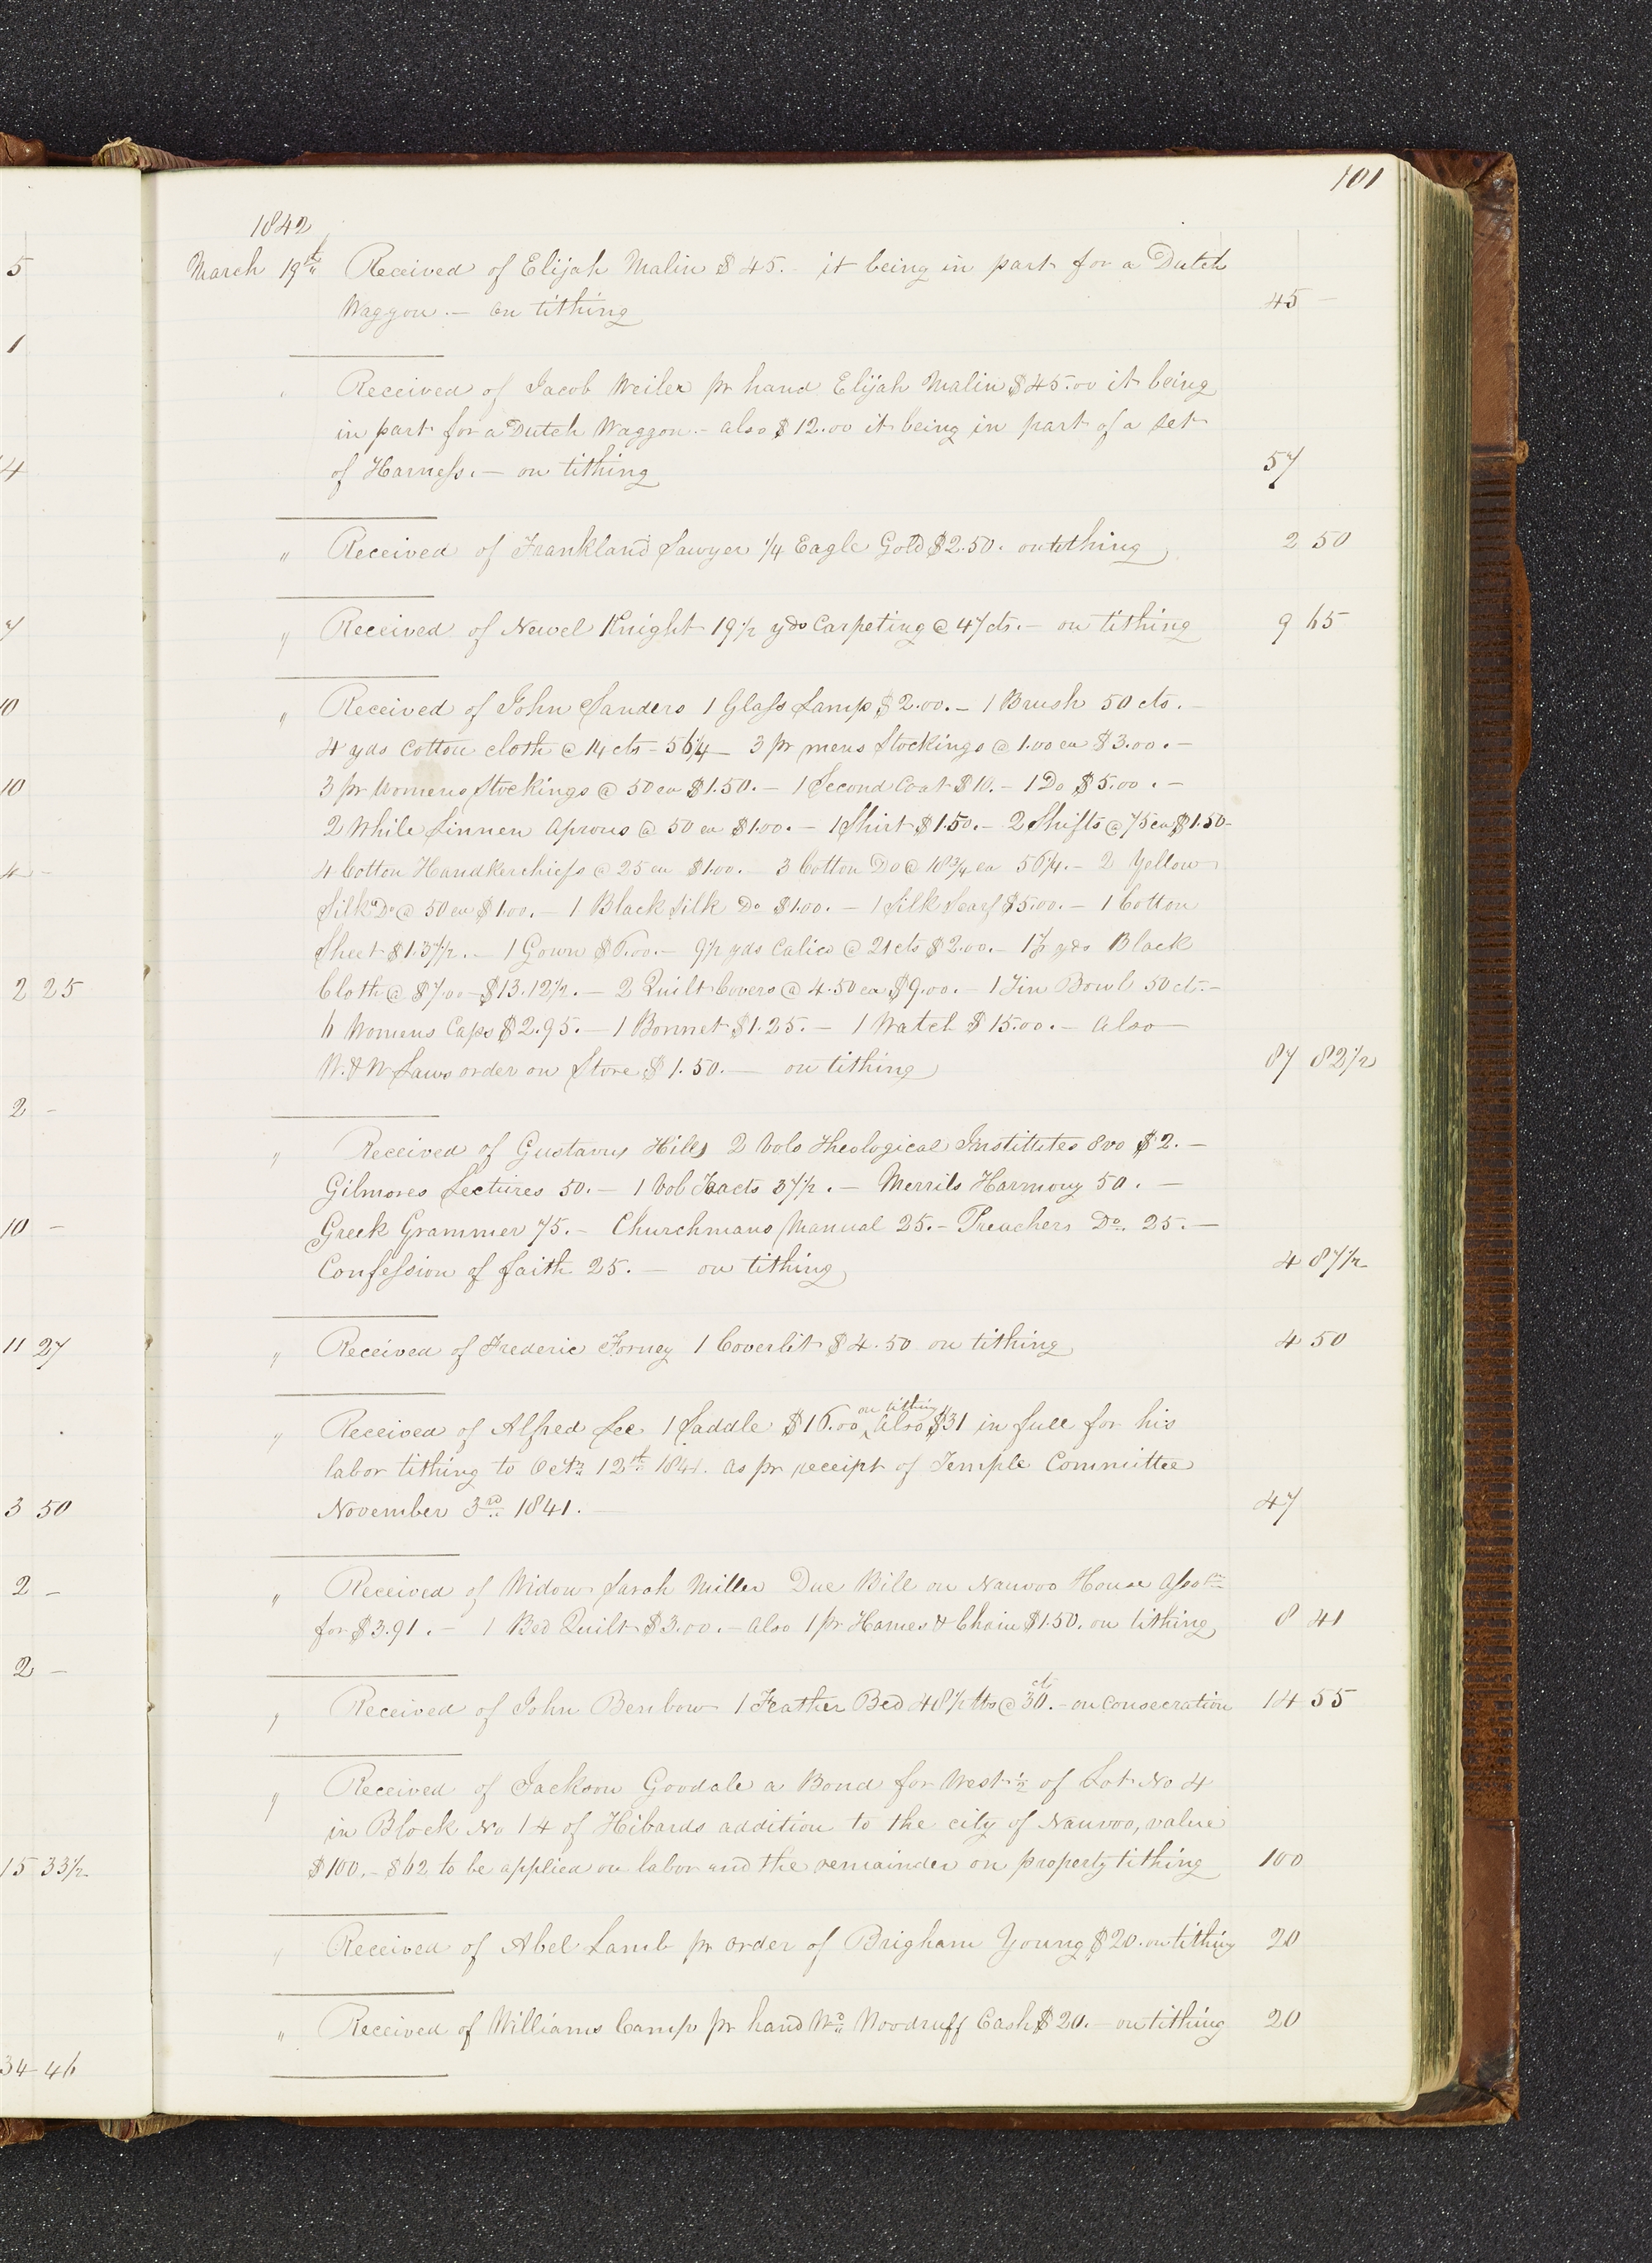 101
1842
March 19th Received of Elijah Malin $45.- it being in part for a Dutch
Waggon.— on tithing 45 —
" Received of Jacob Weiler pr hand Elijah Malin $45.00 it being
in part for a Dutch Waggon.- also $12.00 it being in part of a set
of Harness.— on tithing 57
" Received of Frankland Sawyer 1/4 Eagle Gold $2.50. on tithing 2 50
" Received of Newel Knight 19 1/2 yds Carpeting @ 47 cts.— on tithing 9 65
" Received of John Sanders 1 Glass Lamp $2.00.— 1 Brush 50 cts.—
4 yds Cotton cloth @ 14 cts - 56 1/4 — 3 pr mens Stockings @ 1.00 ea $3.00.—
3 pr Womens Stockings @ 50 ea $1.50.— 1 Second Coat $10.— 1 Do $5.00.—
2 While Linnen Aprons @ 50 ea $1.00.— 1 Shirt $1.50.— 2 Shifts @ 75 ea $1.50-
4 Cotton Handkerchiefs @ 25 ea $1.00.— 3 Cotton Do @ 18 3/4 ea 56 1/4.— 2 Yellow
Silk Do @ 50 ea $1.00.— 1 Black Silk Do $1.00.— 1 Silk Scarf $5.00.— 1 Cotton
Sheet $1.37 1/2.— 1 Gown $6.00.— 9 1/2 yds Calico @ 21 cts $2.00.— 1 7/8 yds Black
Cloth @ $7.00 - $13.12 1/2.— 2 Quilt Covers @ 4.50 ea $9.00.— 1 Tin Bowl 50 ct.-
6 Womens Caps $2.95.— 1 Bonnet $1.25.— 1 Watch $15.00.— Also
W. & W Laws order on Store $1.50.— on tithing 87 82 1/2
" Received of Gustavus Hills 2 Vols Theological Institutes 8vo $2.—
Gilmores Lectures 50.— 1 Vol Tracts 37 1/2.— Merrils Harmony 50.—
Greek Grammer 75.— Churchmans Manual 25.— Preachers Do. 25.—
Confession of faith 25.— on tithing 4 87 1/2
" Received of Frederic Forney 1 Coverlit $4.50 on tithing 4 50
on tithing
" Received of Alfred Lee 1 Saddle $16.00 ^ also $31 in full for his
labor tithing to Octr 12th 1841. as pr receipt of Temple Committee
November 3rd 1841.— 47
" Received of Widow Sarah Miller Due Bill on Nauvoo House Assotn
for $3.91.— 1 Bed Quilt $3.00.— also 1 pr Hames & Chain $1.50. on tithing 8 41
" Received of John Benbow 1 Feather Bed 48 1/2 lbs @ 30 cts.- on Consecration 14 55
" Received of Jackson Goodale a Bond for West 1/2 of Lot No 4
in Block No 14 of Hibards addition to the city of Nauvoo, value
$100.- $62 to be applied on labor and the remainder on property tithing 100
" Received of Abel Lamb pr order of Brigham Young $20. on tithing 20
" Received of Williams Camp pr hand Wd Woodruff Cash $20.— on tithing 20
5
1
4
7
10
10
4 -
2 25
2 -
10 -
11 27
3 50
2 -
2 -
15 33 1/2
34 46